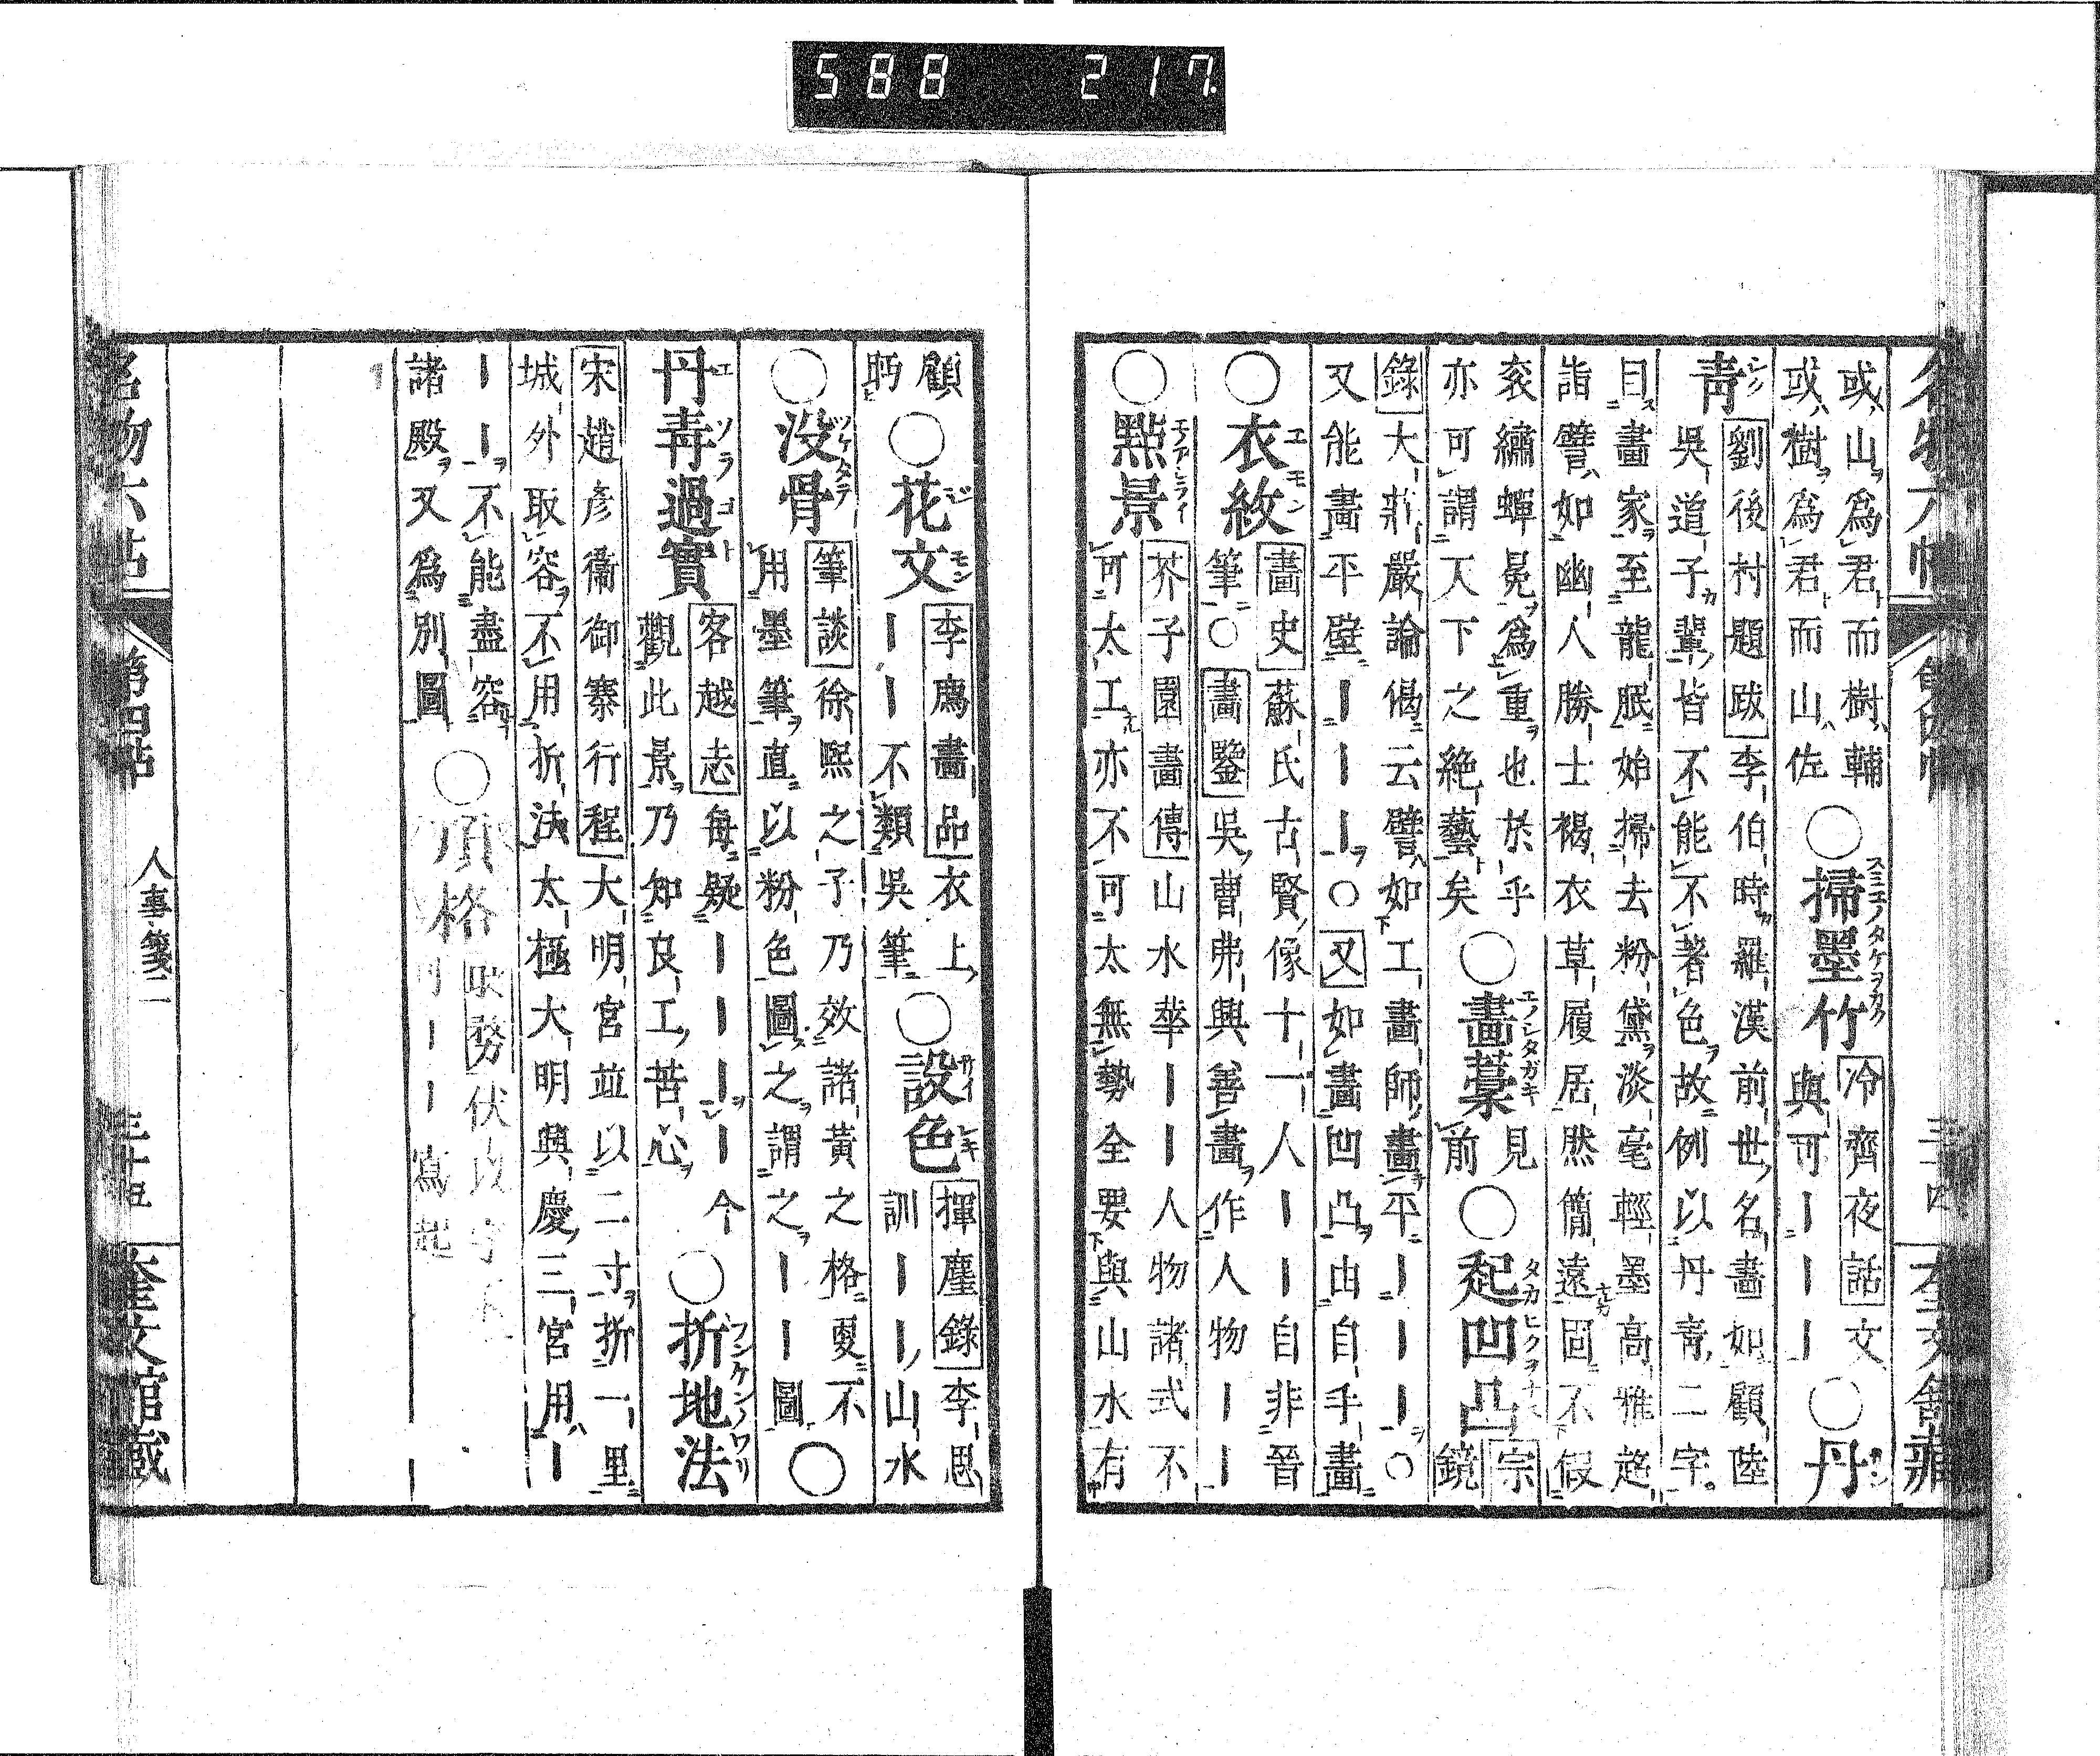 名物六帖
三十四
奎文館藏
或山爲君而樹輔
或樹爲君而山佐
○掃墨竹
スミエノタケヲカク
冷齊夜話文
與可｜｜｜
○丹
青
劉後村題跋李伯時羅漢前世名畫如顧陸
吳道子輩皆不能不著色故例以丹青二字
目畫家至龍眠始掃去粉黛淡毫輕墨高雅超
詣譬如幽人勝士褐衣草履居然簡遠固不假
袞繡蟬冕爲重也於乎
亦可謂天下之絶藝矣
○畫藁
エノシタガキ
見
前
○起凹凸
タカヒクヲナス
宗
鏡
錄大莊嚴論偈云譬如工畫師畫平｜｜｜○
又能畫平壁｜｜｜○又如畫凹凸由自手畫
○衣紋
エモン
畫史蘇氏古賢像十一人｜｜自非晉
筆○畫鑒吳曹弗興善畫作人物｜｜
○㸃景
エノアシライ
芥子園畫傳山水華｜｜人物諸式不
可太工亦不可太無勢全要與山水有
顧
眄
○花文
モン
李廌畫品衣上
｜｜不類吳筆
○設色
サイシキ
揮塵錄李思
訓｜｜山水
○没骨
ツケタテ
筆談徐熙之子乃效諸黃之格更不
用墨筆直以粉色圖之謂之｜｜圖
○
丹青過實
エソラゴト
客越志每疑｜｜｜｜今
觀此景乃知良工苦心
○折地法
フンケンノワリ
宋趙彦衞御寨行程大明宮並以二寸折一里
城外取容不用折法太極大明興慶三宮用｜
｜｜不能盡容
諸殿又爲別圖
○頂格
務伏以字不
｜｜寫起
名物六帖
第四帖
人事箋二
三十五
奎文館藏
588 217